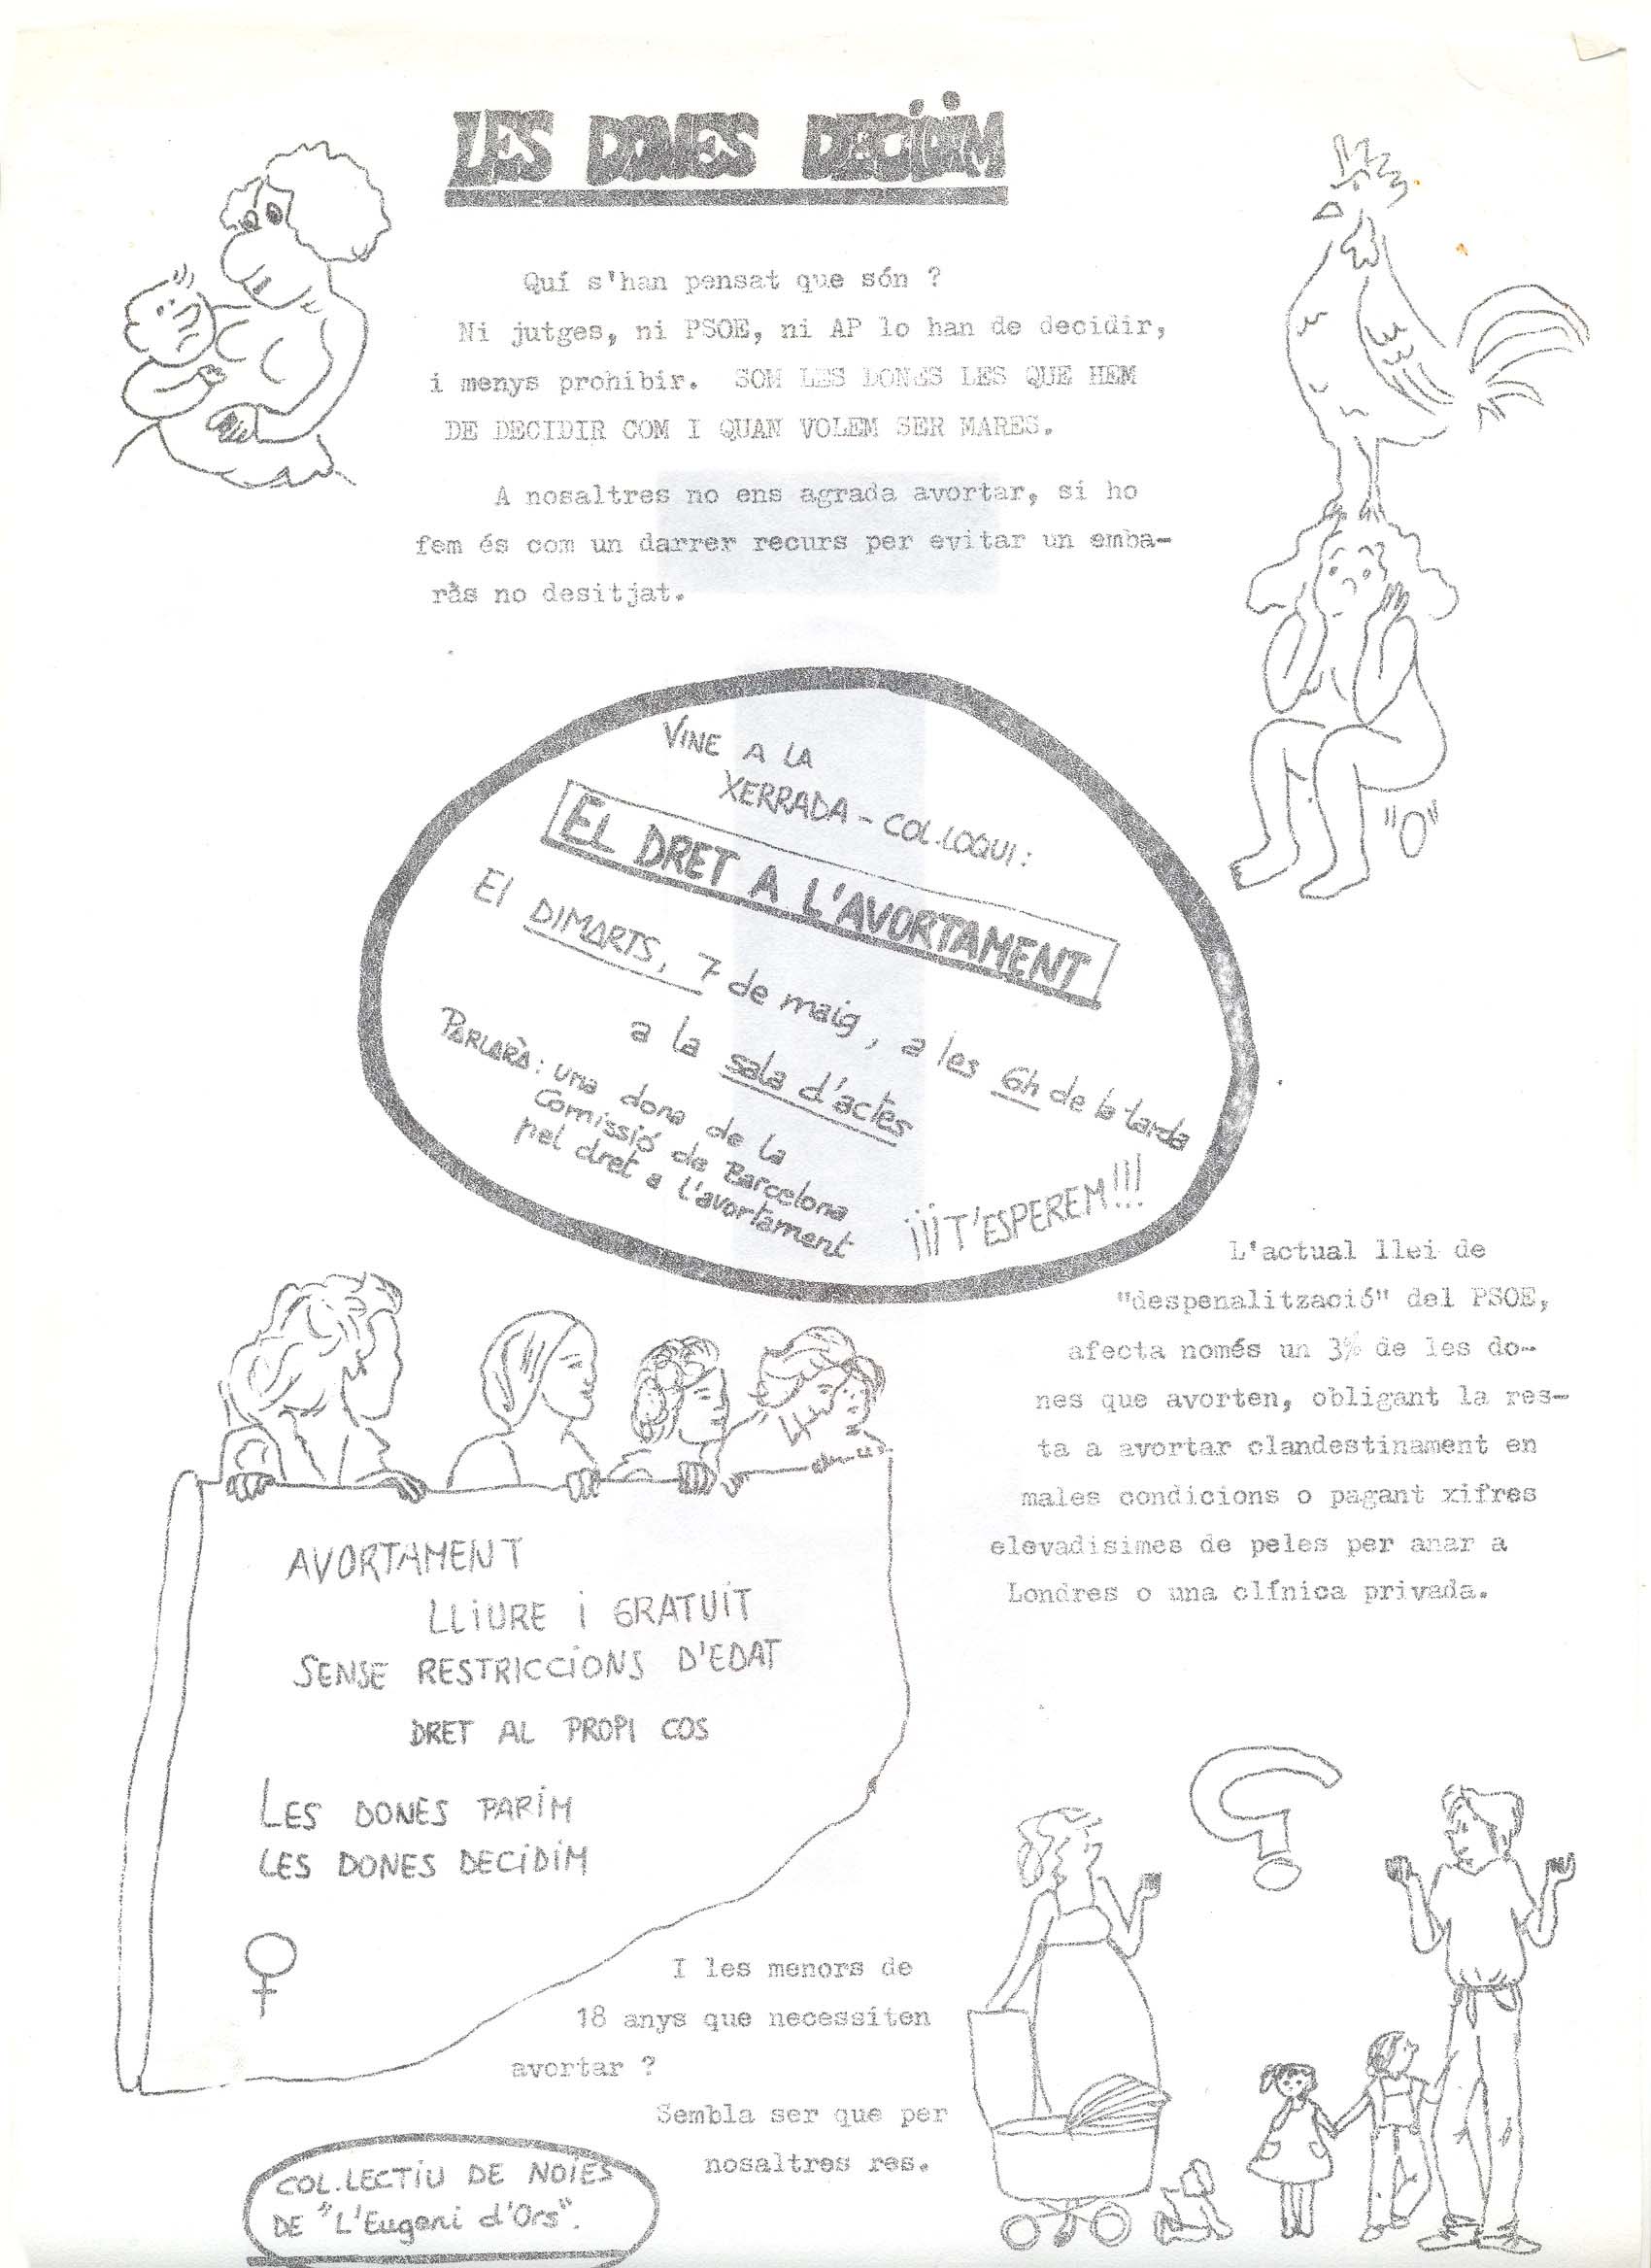 LES DONES DECIDIM
Quí s'han pensat que són ?
Ni jutges, ni PSOE, ni AP lo han de decidir,
i menys prohibir. SOM LES DONES LES QUE HEM
DE DECIDIR COM I QUAN VOLEM SER MARES.
A nosaltres no ens agrada avortar, si ho
fem és com un darrer recurs per evitar un emba-
ràs no desitjat.
VINE A LA
XERRADA - COL.LOQUI:
EL DRET A L'AVORTAMENT
El DIMARTS, 7 de maig, a les 6h de la tarda
a la sala d'actes
PARLARÀ: una dona de la
Comissió de Barcelona
pel dret a l'avortament
¡¡¡T'ESPEREM!!!
L'actual llei de
"despenalització" del PSOE,
afecta només un 3% de les do-
nes que avorten, obligant la res-
ta a avortar clandestinament en
males condicions o pagant xifres
elevadisimes de peles per anar a
Londres o una clínica privada.
AVORTAMENT
LLIURE I GRATUIT
SENSE RESTRICCIONS D'EDAT
DRET AL PROPI COS
LES DONES PARIM
LES DONES DECIDIM
I les menors de
18 anys que necessiten
avortar ?
Sembla ser que per
nosaltres res.
COL.LECTIU DE NOIES
DE "L'Eugeni d'Ors".